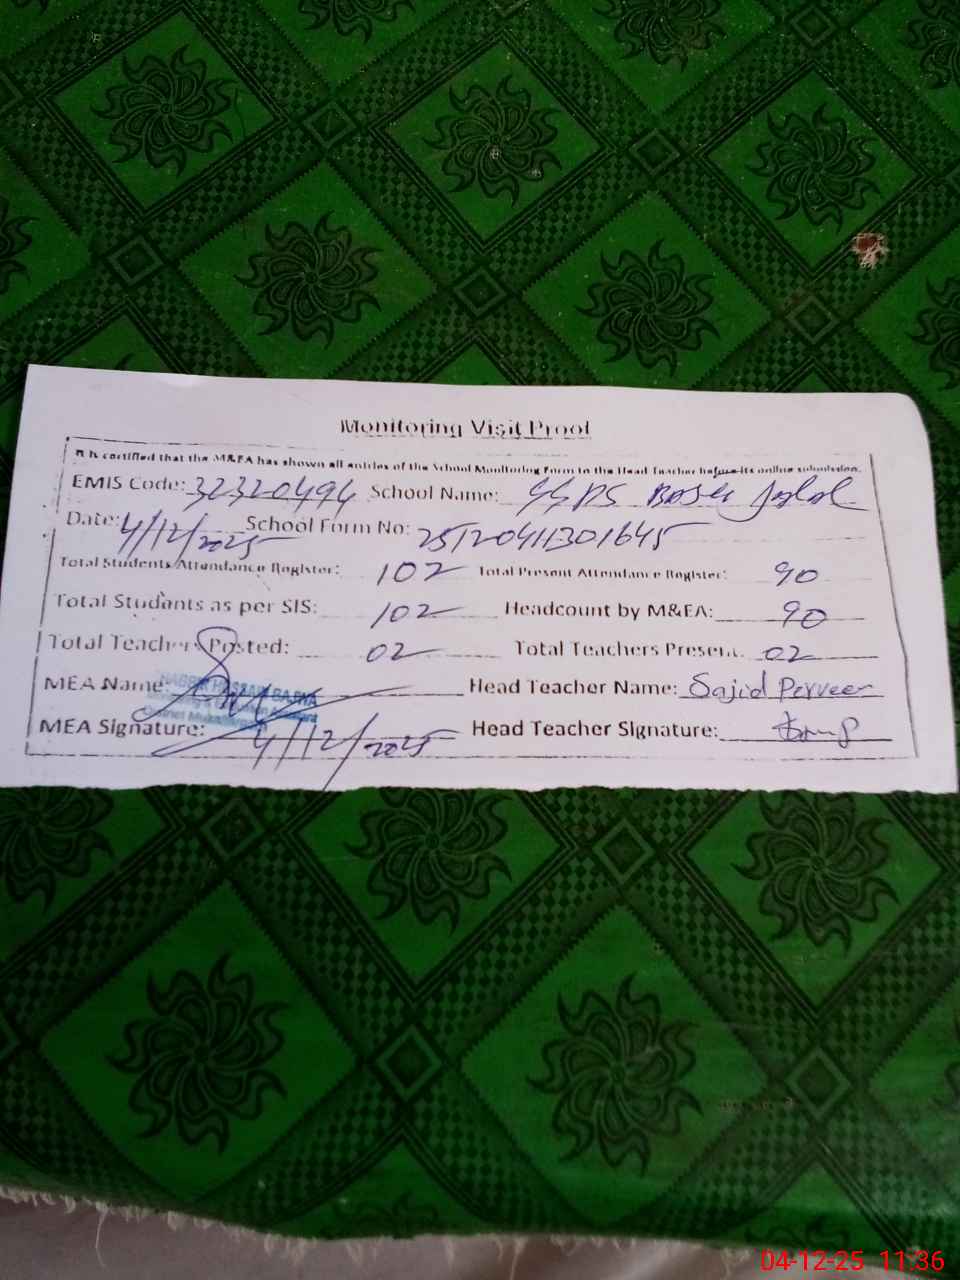 Monitoring Visit Proof
It is certified that the M&EA has shown all entries of the School Monitoring Form to the Head Teacher before its online submission.
EMIS Code: 32320494 School Name: GGPS
Date: 4/12/2025 School Form No: 25120411301645
Total Students Attendance Register: 102 Total Present Attendance Register: 90
Total Students as per SIS: 102 Headcount by M&EA: 90
Total Teachers Posted: 02 Total Teachers Present: 02
MEA Name: Head Teacher Name: Sajid Perveen
MEA Signature: 4/12/2025 Head Teacher Signature:
04-12-25 11:36